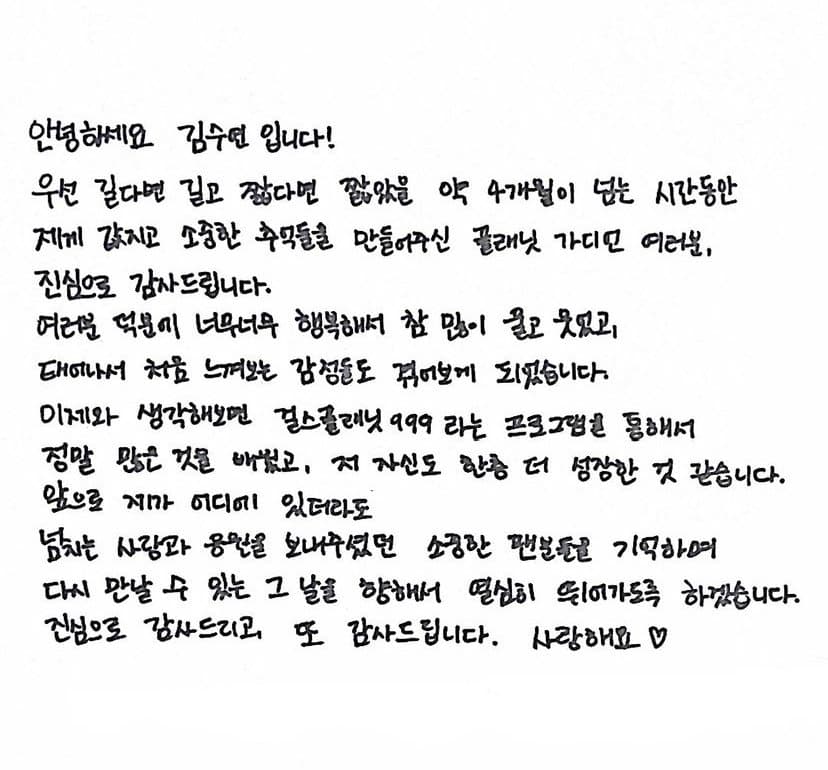 안녕하세요 김수연 입니다!
우선 길다면 길고 짧다면 짧았을 약 4개월이 넘는 시간동안
제게 값지고 소중한 추억들을 만들어주신 플래닛 가디언 여러분,
진심으로 감사드립니다.
여러분 덕분에 너무너무 행복해서 참 많이 울고 웃었고,
태어나서 처음 느껴보는 감정들도 겪어보게 되었습니다.
이제와 생각해보면 걸스플래닛999 라는 프로그램을 통해서
정말 많은 것을 배웠고, 저 자신도 한층 더 성장한 것 같습니다.
앞으로 제가 어디에 있더라도
넘치는 사랑과 응원을 보내주셨던 소중한 팬분들을 기억하며
다시 만날 수 있는 그 날을 향해서 열심히 뛰어가도록 하겠습니다.
진심으로 감사드리고, 또 감사드립니다. 사랑해요♡